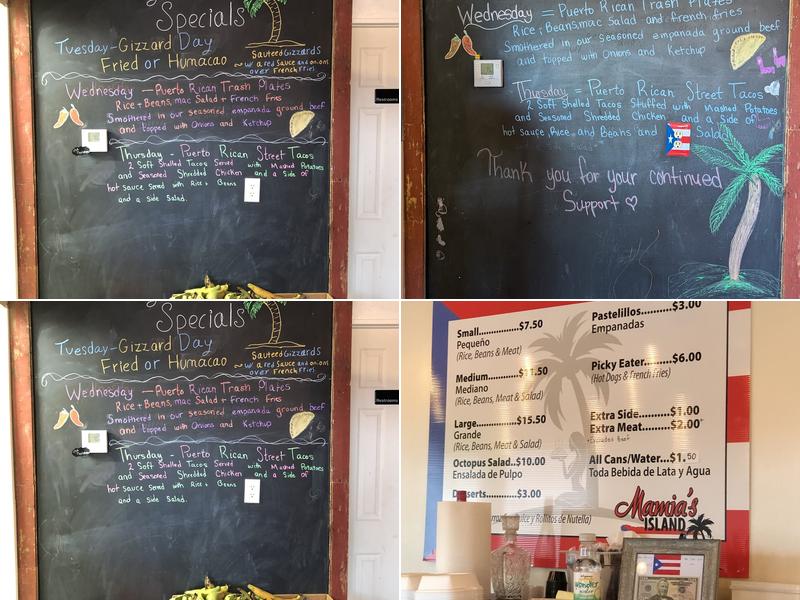 Specials
Tuesday-Gizzard Day
Fried or Humacao
Sauteed Gizzards
w/ a red Sauce and onions
over French Fries
Wednesday - Puerto Rican Trash Plates
Rice + Beans, mac Salad + French Fries
Smothered in our seasoned empanada ground beef
and topped with Onions and Ketchup
Thursday - Puerto Rican Street Tacos
2 Soft Shelled Tacos Served with Mashed Potatoes
and Seasoned Shredded Chicken and a Side of
hot sauce Served with Rice + Beans
and a side Salad.
Restrooms
Wednesday = Puerto Rican Trash Plates
Rice, Beans, mac Salad and French fries
Smothered in our seasoned empanada ground beef
and topped with Onions and Ketchup
Thursday = Puerto Rican Street Tacos
2 Soft Shelled Tacos Stuffed with Mashed Potatoes
and Seasoned Shredded Chicken and a side of
hot sauce, Rice and Beans and Salad
Thank you for your continued
Support
Specials
Tuesday-Gizzard Day
Fried or Humacao
Sauteed Gizzards
w/ a red Sauce and onions
over French Fries
Wednesday - Puerto Rican Trash Plates
Rice + Beans, mac Salad + French Fries
Smothered in our seasoned empanada ground beef
and topped with Onions and Ketchup
Thursday - Puerto Rican Street Tacos
2 Soft Shelled Tacos Served with Mashed Potatoes
and Seasoned Shredded Chicken and a Side of
hot sauce Served with Rice + Beans
and a side Salad.
Restrooms
Small...............$7.50
Pequeño
(Rice, Beans & Meat)
Medium............$11.50
Mediano
(Rice, Beans, Meat & Salad)
Large...............$15.50
Grande
(Rice, Beans, Meat & Salad)
Octopus Salad..$10.00
Ensalada de Pulpo
Desserts............$3.00
Dulce y Rollitos de Nutella)
Pastelillos..........$3.00
Empanadas
Picky Eater........$6.00
(Hot Dogs & French Fries)
Extra Side..........$1.00
Extra Meat.........$2.00+
*Excludes Beef
All Cans/Water...$1.50
Toda Bebida de Lata y Agua
Mamia's
ISLAND
wonder
water